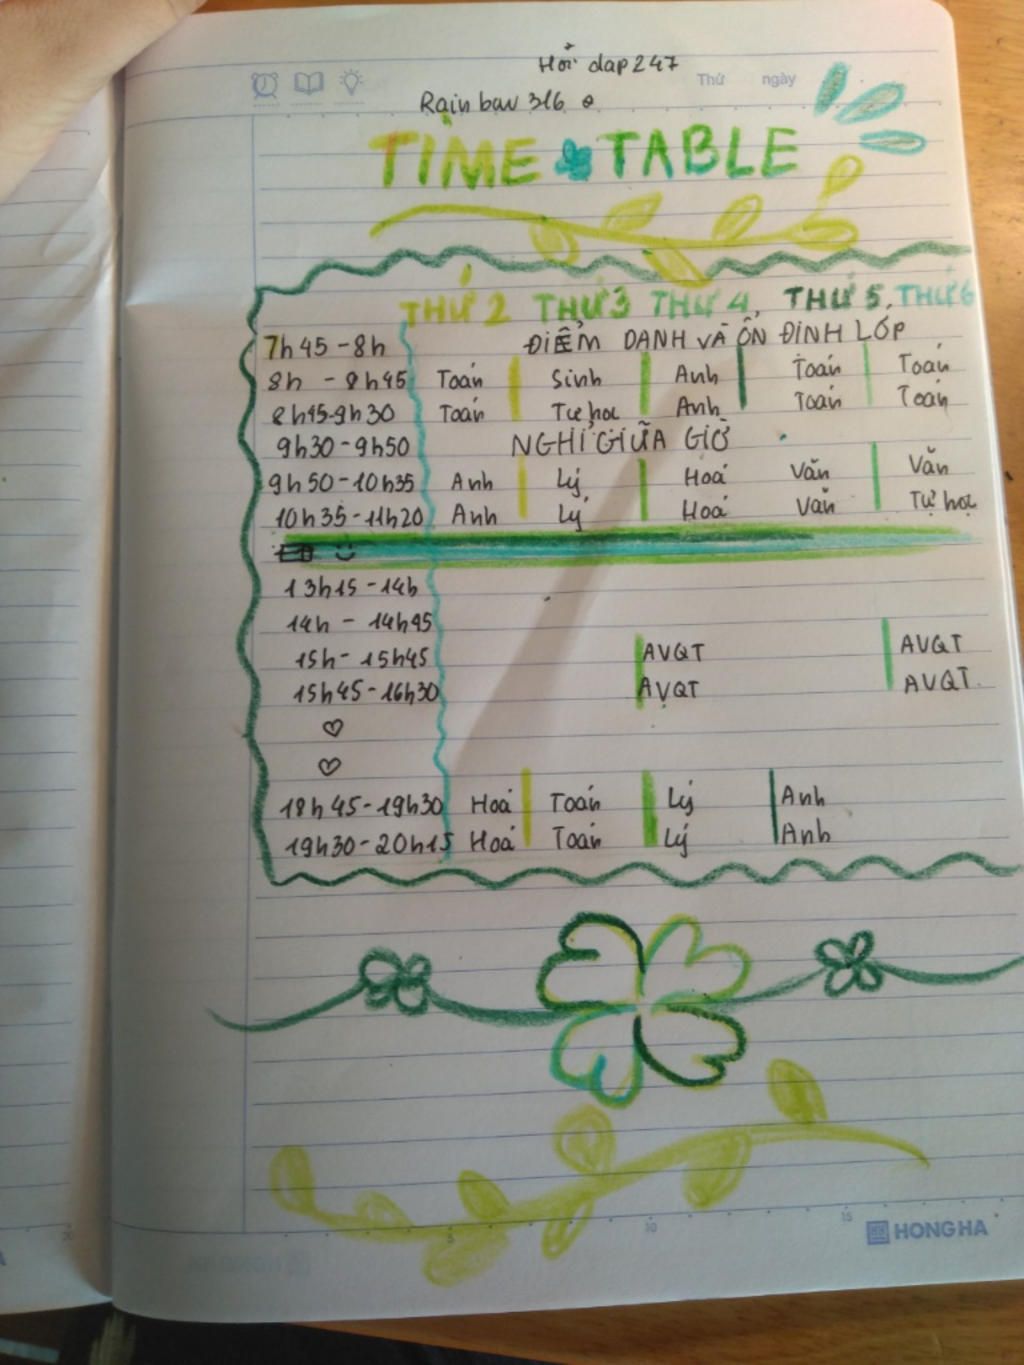 Hỏi dap 247
Thứ ngày
Rainbow 316
TIME TABLE
THỨ 2 THỨ 3 THỨ 4 THỨ 5 THỨ 6
7h45 - 8h ĐIỂM DANH VÀ ỔN ĐỊNH LỚP
8h - 8h45 Toán Sinh Anh Toán Toán
8h45-9h30 Toán Tự học Anh Toán Toán
9h30-9h50 NGHỈ GIỮA GIỜ
9h50-10h35 Anh Lý Hoá Văn Văn
10h35-11h20 Anh Lý Hoá Văn Tự học
13h15-14h
14h - 14h45
15h-15h45 AVQT AVQT
15h45-16h30 AVQT AVQT
18h45-19h30 Hoá Toán Lý Anh
19h30-20h15 Hoá Toán Lý Anh
5 10 15
HONG HA